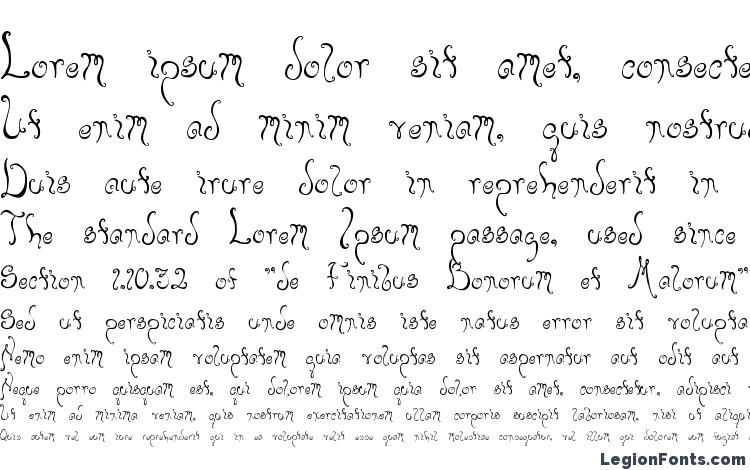 Lorem ipsum dolor sit amet, consecte
Ut enim ad minim veniam, quis nostru
Duis aute irure dolor in reprehenderit in
The standard Lorem Ipsum passage, used since
Section 1.10.32 of "de Finibus Bonorum et Malorum"
Sed ut perspiciatis unde omnis iste natus error sit volupta
Nemo enim ipsam voluptatem quia voluptas sit aspernatur aut odit aut
Neque porro quisquam est, qui dolorem ipsum quia dolor sit amet, consectetur, adipisci
Ut enim ad minima veniam, quis nostrum exercitationem ullam corporis suscipit laboriosam, nisi ut aliquid
Quis autem vel eum iure reprehenderit qui in ea voluptate velit esse quam nihil molestiae consequatur, vel illum qui dolorem eum fugiat
LegionFonts.com